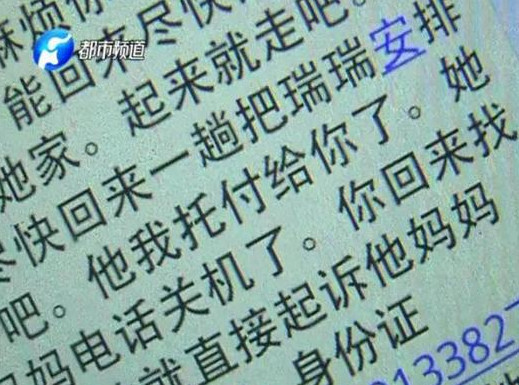 都市频道
麻烦你
能回来尽快
起来就走吧。
她家。
尽快回来一趟把瑞瑞安排
吧。他我托付给你了。她
妈妈电话关机了。你回来找
就直接起诉他妈妈
身份证
013382